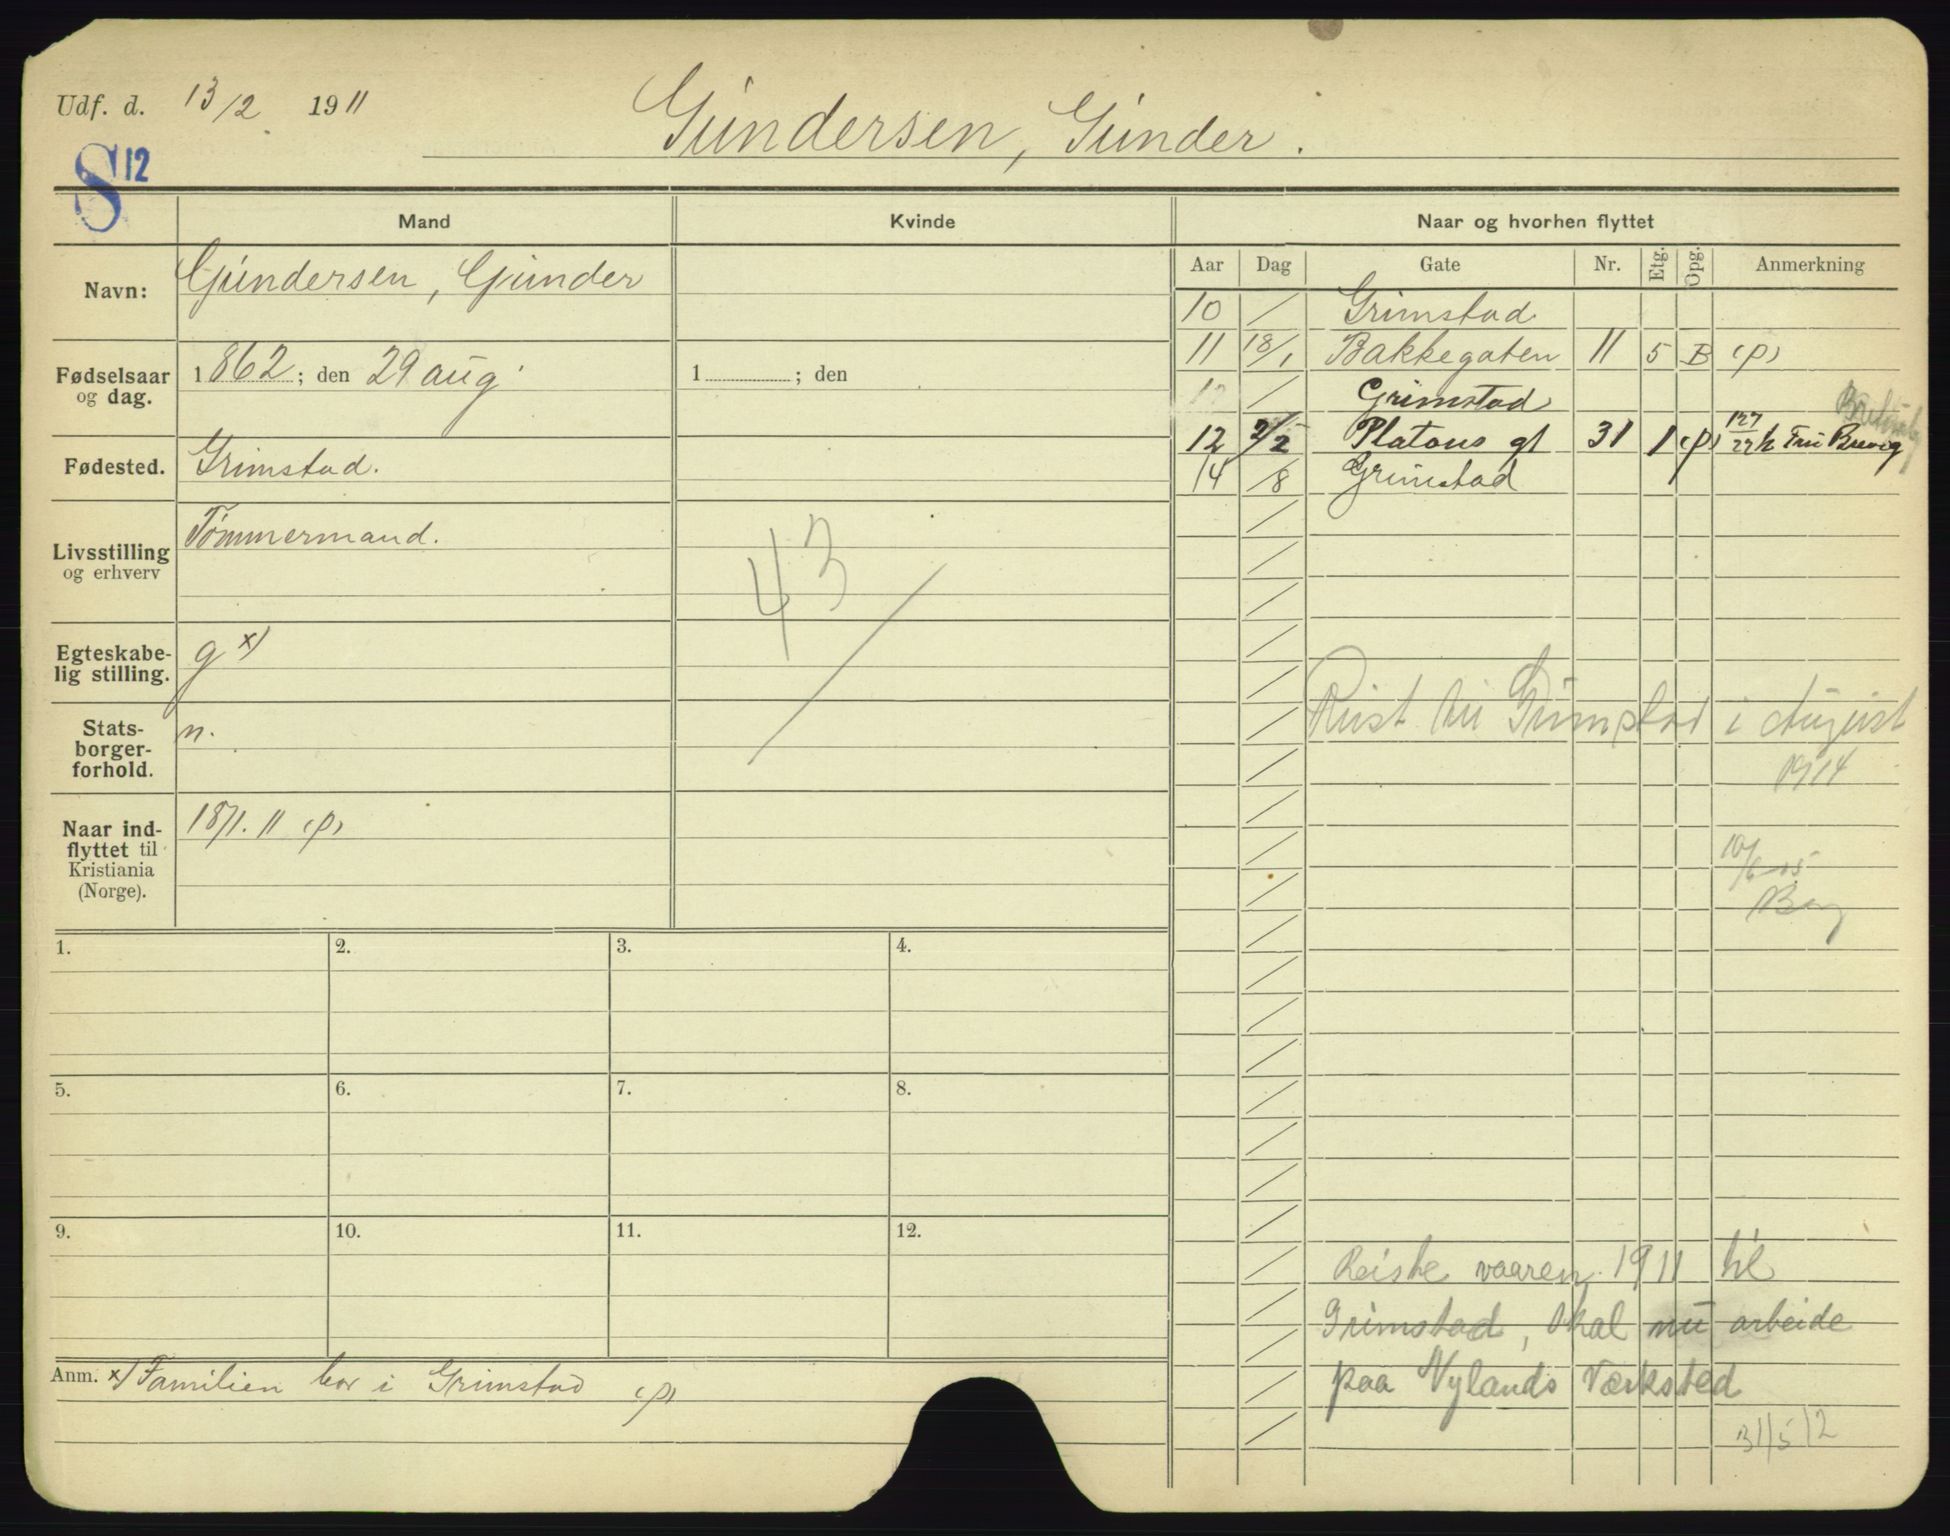 Udf. d. 13/2 1911
Gundersen, Gunder.
S 12
Mand
Kvinde
Naar og hvorhen flyttet
Navn: Gundersen, Gunder
Fødselsaar og dag. 1862; den 29 aug.
1 ; den
Fødested. Grimstad.
Livsstilling og erhverv Tømmermand.
Egteskabelig stilling. g x)
Statsborgerforhold. n.
Naar indflyttet til Kristiania (Norge). 18/1. 11 (p)
43
Aar Dag Gate Nr. Etg. Opg. Anmerkning
10 / Grimstad
11 18/1 Bakkegaten 11 5 B (p)
12 / Grimstad
12 2/2 Platous gt 31 1 (p)
14 /8 Grimstad
Reist til Grimstad i August
1914
10/6 15
Berg
1. 2. 3. 4.
5. 6. 7. 8.
9. 10. 11. 12.
Reiste vaaren 1911 til
Grimstad, skal nu arbeide
paa Nylands Værksted
31/5 12
Anm. x) Familien bor i Grimstad (p)